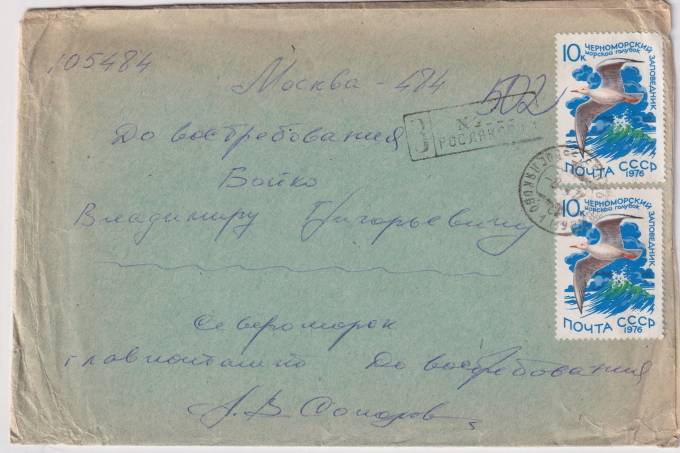 105484
Москва 484
До востребования
Бойко
Владимиру Григорьевичу
Североморск
главпочтамт До востребования
А.В.
З
№
РОСЛЯКОВО
502
10к
ЧЕРНОМОРСКИЙ ЗАПОВЕДНИК
морской голубок
ПОЧТА СССР
1976
10к
ЧЕРНОМОРСКИЙ ЗАПОВЕДНИК
морской голубок
ПОЧТА СССР
1976